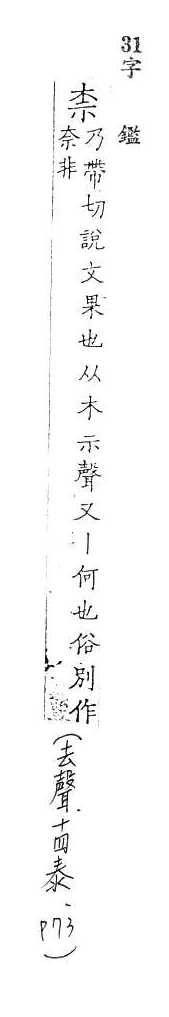 31字鑑
柰 乃帶切說文果也从木示聲又丨何也俗別作
奈非
(去聲、十四泰、P73)